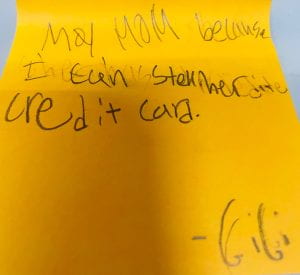 May MOM because
I can steal her
credit card.
-GiGi